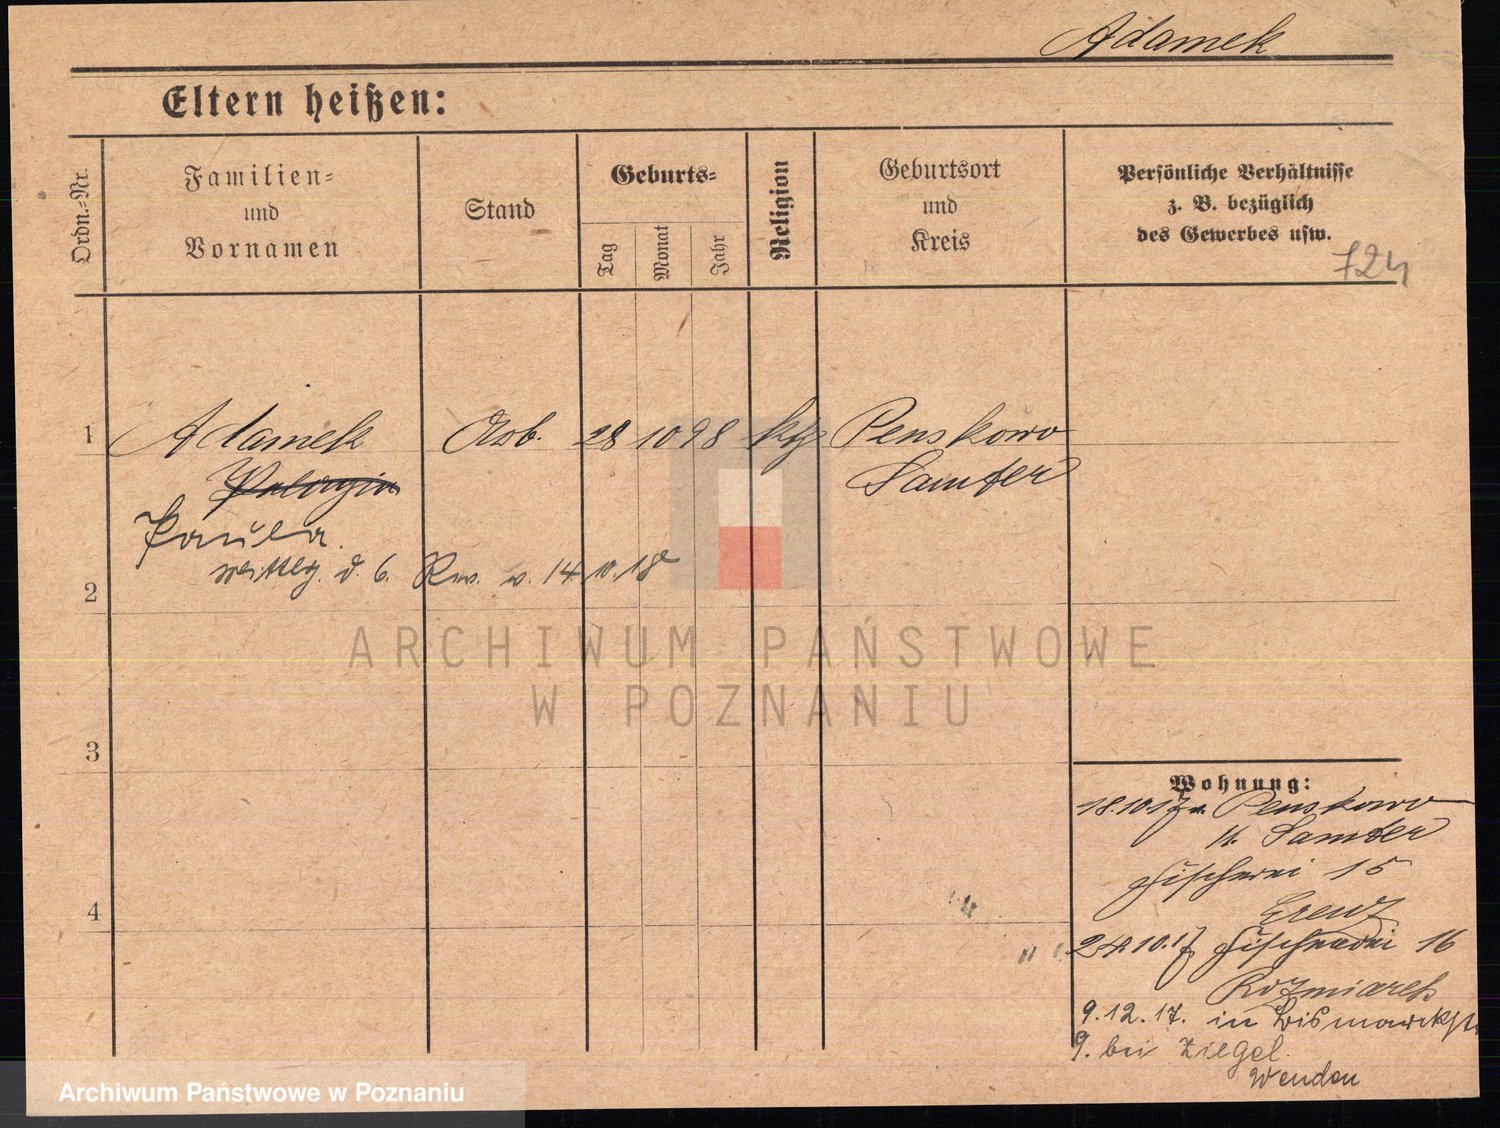 Adamek
Eltern heißen:
Ordn.-Nr.
Familien-
und
Vornamen
Stand
Geburts-
Tag
Monat
Jahr
Religion
Geburtsort
und
Kreis
Persönliche Verhältnisse
z. B. bezüglich
des Gewerbes usw.
724
1 Adamek Arb. 28 10 98 kth Penskowo
Pelagia Samter
Paula
d. 6. Rev. v. 14.10.18
2
ARCHIWUM PAŃSTWOWE
W POZNANIU
3
Wohnung:
18.10.17 v. Penskowo
Samter
Fischerei 15
24.10.17 Fischerei 16
Kozmiarek
9.12.17. in Bismarckstr
9. bei Ziegel.
4
Archiwum Państwowe w Poznaniu